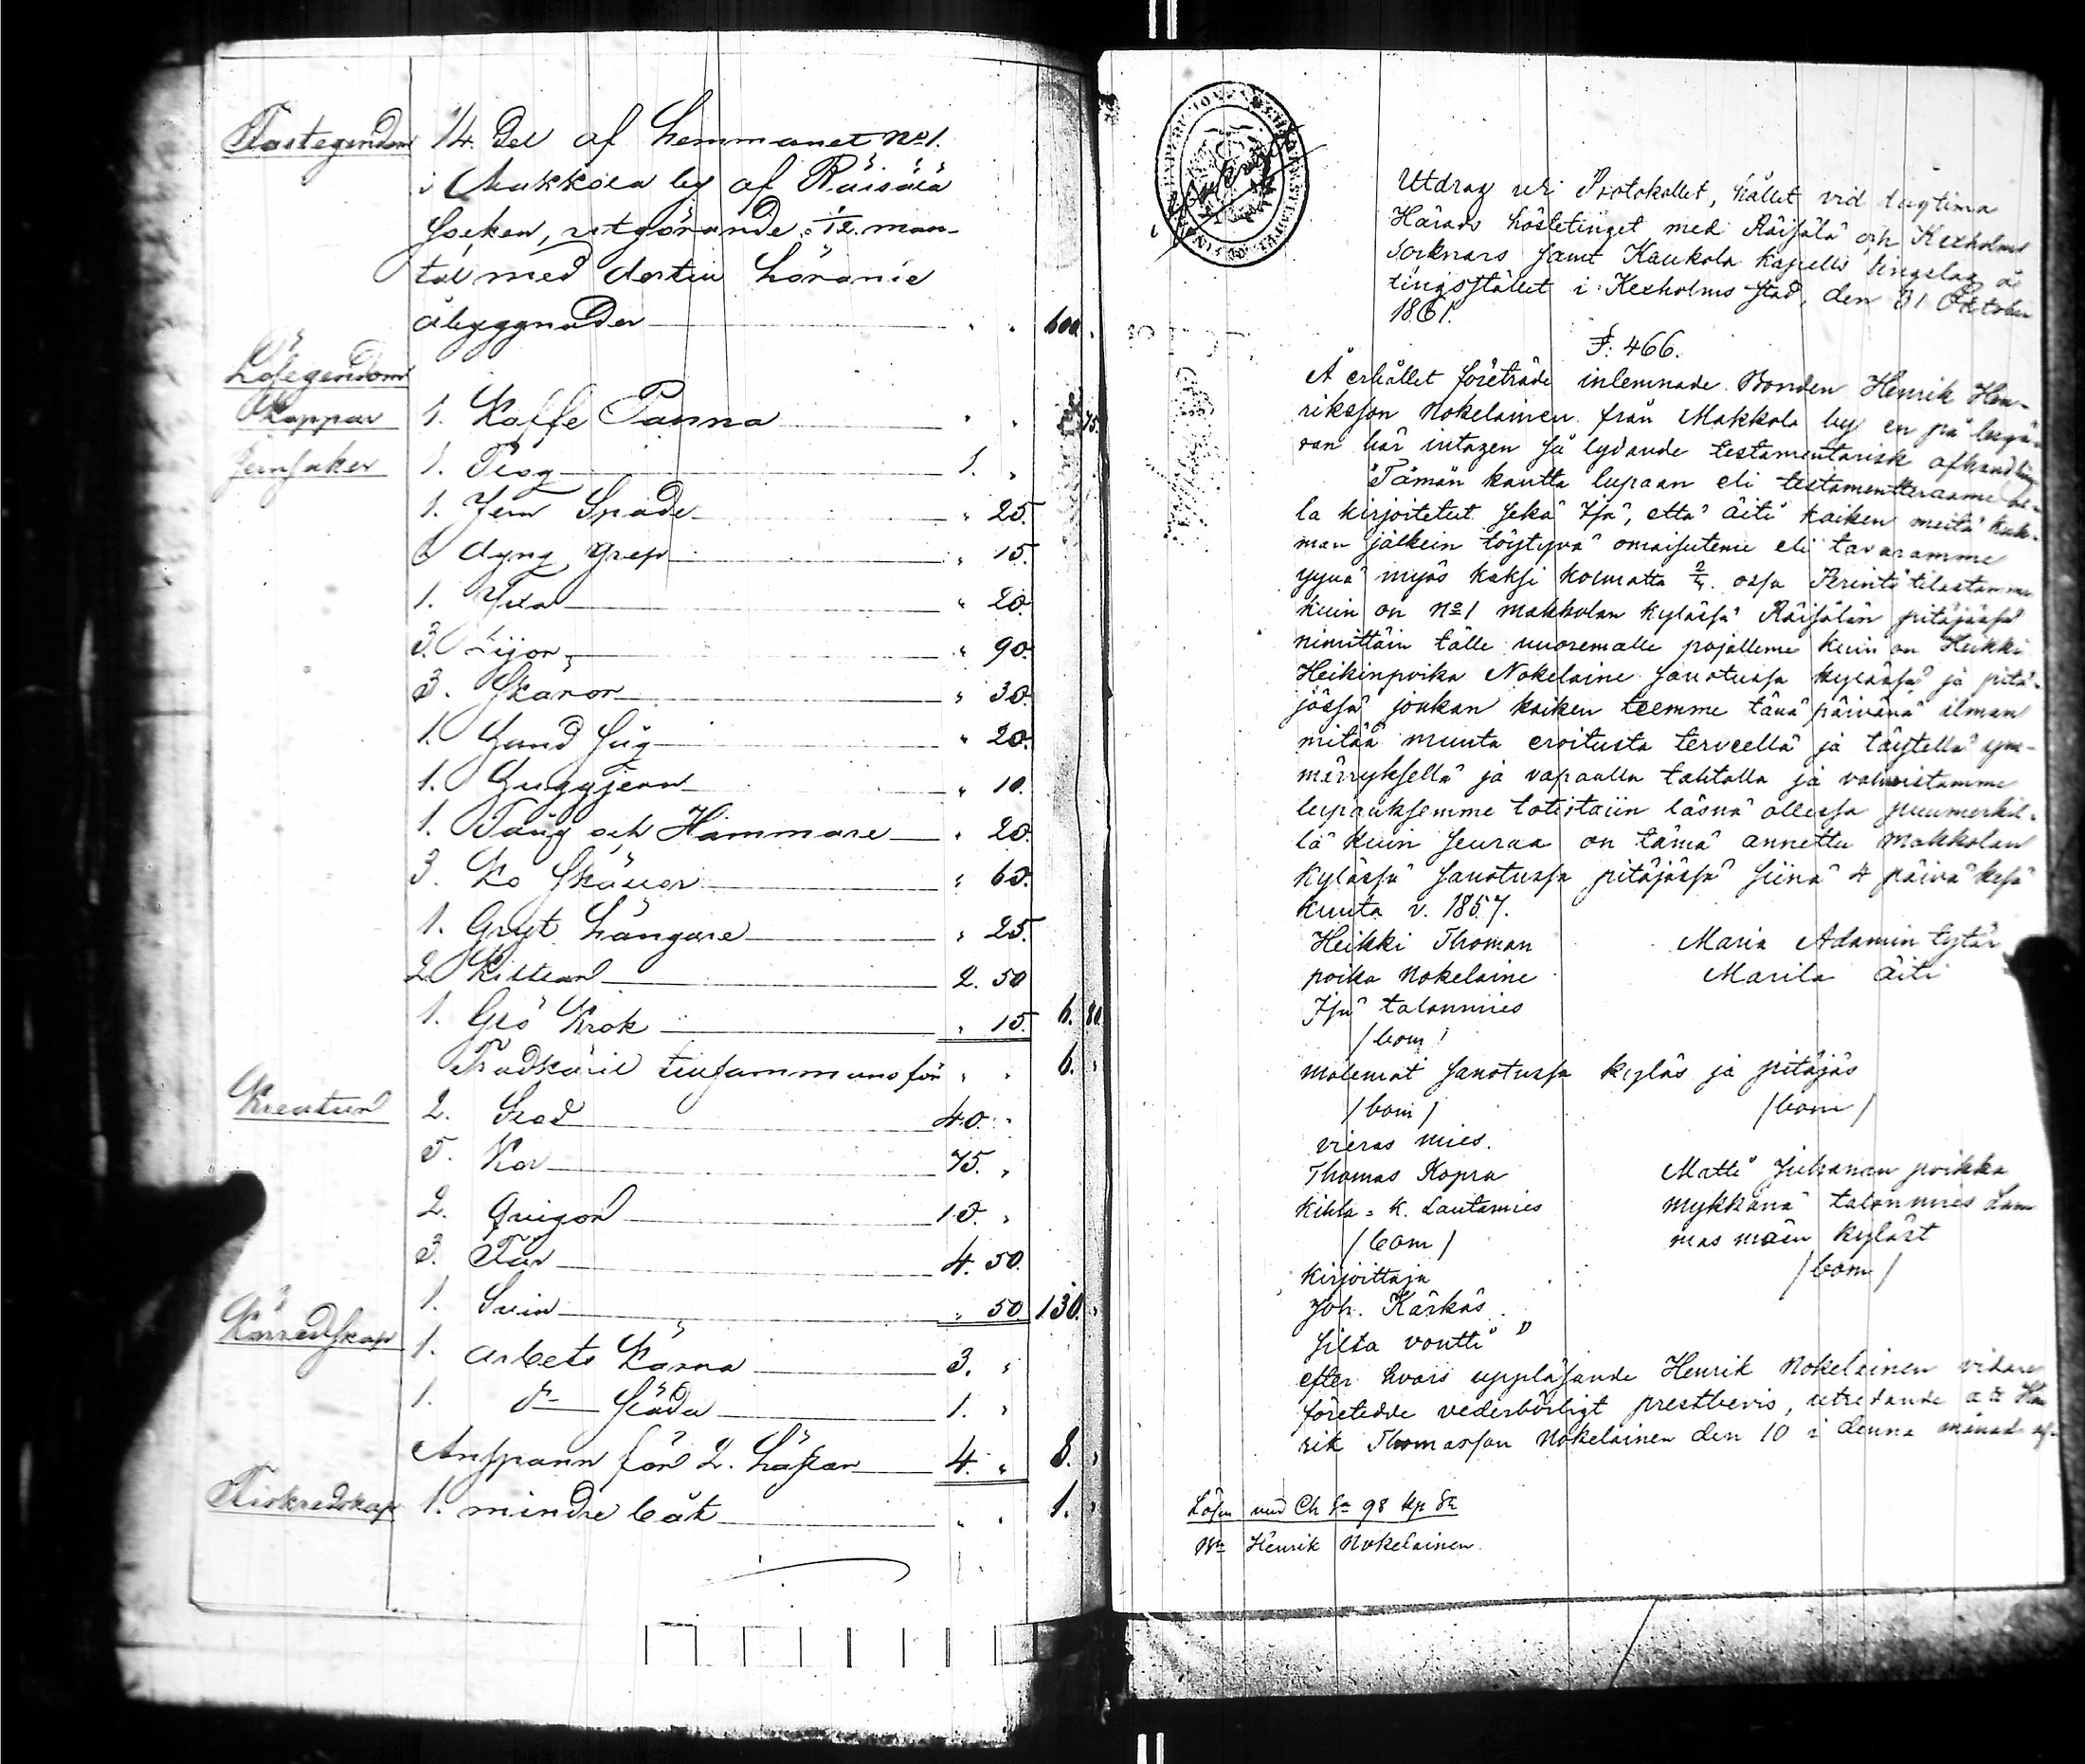 Fastegendom 1/4. Del af hemmanet No 1.
i Makkola by af Räisälä
Socken, utgörande 1/12. man-
tal med dertill hörande
åbyggnader " " 600 "
Lösegendom
Koppar 1. Kaffe Panna " " 75.
Jernsaker 1. Plog 1. "
1. Jern Spade " 25.
1 dyng Grep " 15.
1. Yxa " 20.
3. Lijor " 90.
3. Skäror " 30.
1. Hand Såg " 20.
1. Huggjern " 10.
1. Tång och Hammare " 20.
3. Ko Skällor " 60.
1. Gryt hängare " 25.
2 Kittlar 2. 50
1. Krok " 15. 6. 80
Trädkäril tillsammans för " " 6. "
Kreatur 2. 40. "
5. Kor 75. "
2. Quigor 10. "
3. Får 4. 50.
1. Svin " 50. 130. "
Körredskap 1. arbets Kärra 3. "
1. do Släda 1. "
Anspann för 2. hästar 4. " 8. "
Fiskredskap 1. mindre båt " " 1. "
Utdrag ur Protokollet, hållet vid lagtima
Härads hösttinget med Räisälä och Kexholms
Socknars samt Kaukola Kapells tingslag å
tingsstället i Kexholms stad, den 31 Oktober
1861.
§: 466.
Å erhållet företräde inlemnade Bonden Henrik Hen-
riksson Nokelainen från Makkola by en på begä-
ran här intagen så lydande testamentarisk afhandling
"Tämän kautta lupaan eli testamentteraame al-
la kirjoitetut sekä Isä, että äiti kaiken meitä kuk-
man jälkein löystyvä omaisuteme eli tavaramme
myös kaksi kolmatta ossa Perintö tilastamme
kuin on No 1 makkolan kylässä Räisälän pitäjässä
nimittäin tälle nuoremalle pojalleme kuin on Heikki
Heikinpoika Nokelaine sanotussa kylässä ja pitä-
jässä jonkan kaiken teemme tänä päivänä ilman
mitää muuta eroitusta terveellä ja täytellä ym-
märryksellä ja vapaalla tahtolla ja vahvistamme
lupauksemme totistaiin läsnä ollessa puumerkil-
lä kuin seuraa on tämä annettu Makkolan
kylässä sanotussa pitäjässä siinä 4 päivä kesä
kuuta v. 1857.
Heikki Thoman Maria Adamin tytär
poika Nokelaine Marila äiti
Isä talonmies
/bom/
molemat sanotussa kyläs ja pitäjäs
/bom/ /bom/
vieras mies.
Thomas Kopra Matti Juhanan poikka
Kihla = K. Lautamies Mykkänä talonmies Lam
/bom/ mas mäen kyläst
kirjoittaja /bom/
Joh. Kärkäs
silta voutti"
efter hvars uppläsande Henrik Nokelainen vidare
företedde vederbörligt prestbevis, utredande att Hen
rik Thomasson Nokelainen den 10 i denna månad af-
Lösen med 98 kp Sr
Henrik Nokelainen.